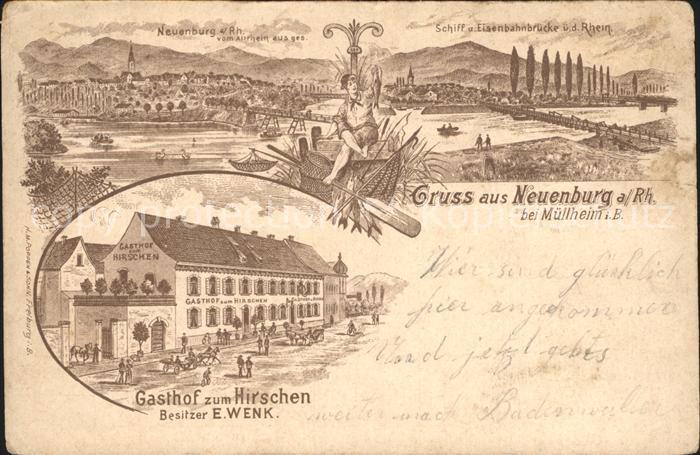 Neuenburg a/Rh.
vom Altrhein aus ges.
Schiff u. Eisenbahnbrücke ü. d. Rhein.
Gruss aus Neuenburg a/Rh.
bei Müllheim i. B.
GASTHOF
ZUM
HIRSCHEN
GASTHOF ZUM HIRSCHEN
Gasthof zum Hirschen
Besitzer E. WENK.
Wir sind glücklich
hier angekommen
und jetzt gehts
weiter nach Badenweiler